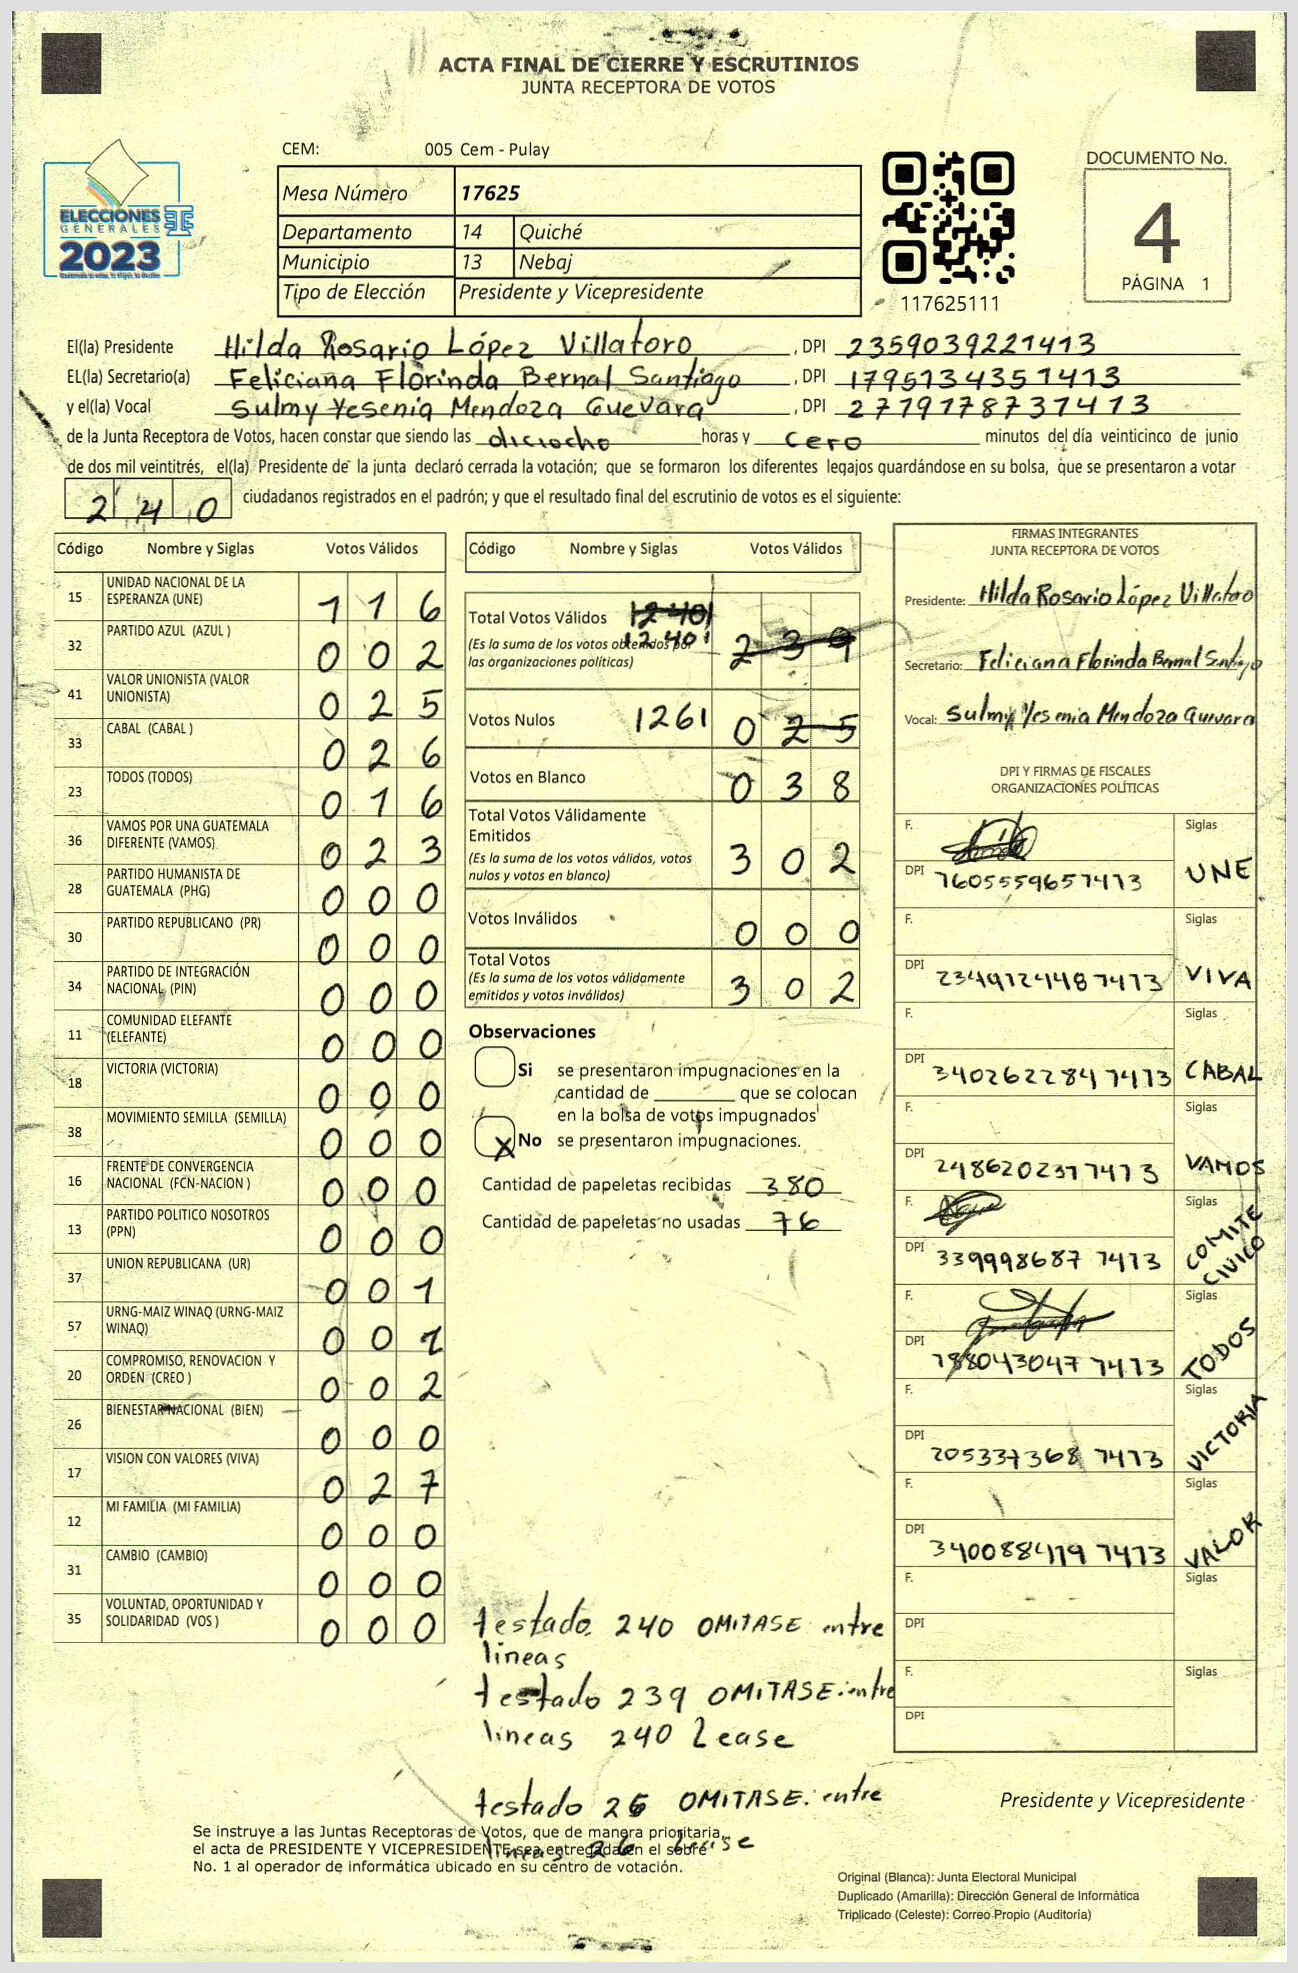 ACTA FINAL DE CIERRE Y ESCRUTINIOS
JUNTA RECEPTORA DE VOTOS
CEM: 005 Cem - Pulay
Mesa Número 17625
Departamento 14 Quiché
Municipio 13 Nebaj
Tipo de Elección Presidente y Vicepresidente
ELECCIONES
GENERALES
2023
117625111
DOCUMENTO No.
4
PÁGINA 1
El(la) Presidente Hilda Rosario López Villatoro, DPI 2359039221413
EL(la) Secretario(a) Feliciana Florinda Bernal Santiago, DPI 1795134351413
y el(la) Vocal Sulmy Yesenia Mendoza Guevara, DPI 2779178731413
de la Junta Receptora de Votos, hacen constar que siendo las dieciocho horas y cero minutos del día veinticinco de junio
de dos mil veintitrés, el(la) Presidente de la junta declaró cerrada la votación; que se formaron los diferentes legajos guardándose en su bolsa, que se presentaron a votar
240 ciudadanos registrados en el padrón; y que el resultado final del escrutinio de votos es el siguiente:
Código Nombre y Siglas Votos Válidos
15 UNIDAD NACIONAL DE LA
ESPERANZA (UNE) 116
32 PARTIDO AZUL (AZUL ) 002
41 VALOR UNIONISTA (VALOR
UNIONISTA) 025
33 CABAL (CABAL ) 026
23 TODOS (TODOS) 016
36 VAMOS POR UNA GUATEMALA
DIFERENTE (VAMOS) 023
28 PARTIDO HUMANISTA DE
GUATEMALA (PHG) 000
30 PARTIDO REPUBLICANO (PR) 000
34 PARTIDO DE INTEGRACIÓN
NACIONAL (PIN) 000
11 COMUNIDAD ELEFANTE
(ELEFANTE) 000
18 VICTORIA (VICTORIA) 000
38 MOVIMIENTO SEMILLA (SEMILLA) 000
16 FRENTE DE CONVERGENCIA
NACIONAL (FCN-NACION ) 000
13 PARTIDO POLITICO NOSOTROS
(PPN) 000
37 UNION REPUBLICANA (UR) 001
57 URNG-MAIZ WINAQ (URNG-MAIZ
WINAQ) 002
20 COMPROMISO, RENOVACION Y
ORDEN (CREO ) 002
26 BIENESTAR NACIONAL (BIEN) 000
17 VISION CON VALORES (VIVA) 027
12 MI FAMILIA (MI FAMILIA) 000
31 CAMBIO (CAMBIO) 000
35 VOLUNTAD, OPORTUNIDAD Y
SOLIDARIDAD (VOS ) 000
Código Nombre y Siglas Votos Válidos
Total Votos Válidos 12401
(Es la suma de los votos obtenidos por 12401 239
las organizaciones políticas)
Votos Nulos 1261 025
Votos en Blanco 038
Total Votos Válidamente
Emitidos
(Es la suma de los votos válidos, votos 302
nulos y votos en blanco)
Votos Inválidos 000
Total Votos
(Es la suma de los votos válidamente 302
emitidos y votos inválidos)
Observaciones
Si se presentaron impugnaciones en la
cantidad de ________ que se colocan
en la bolsa de votos impugnados
X No se presentaron impugnaciones.
Cantidad de papeletas recibidas 380
Cantidad de papeletas no usadas 76
testado 240 OMITASE entre
lineas
testado 239 OMITASE entre
lineas 240 Lease
testado 25 OMITASE. entre
lineas 26 Lease
FIRMAS INTEGRANTES
JUNTA RECEPTORA DE VOTOS
Presidente: Hilda Rosario López Villatoro
Secretario: Feliciana Florinda Bernal Santiago
Vocal: Sulmy Yesenia Mendoza Guevara
DPI Y FIRMAS DE FISCALES
ORGANIZACIONES POLÍTICAS
F. Siglas
DPI 1605559651413 UNE
F. Siglas
DPI 2349124481413 VIVA
F. Siglas
DPI 3402622841413 CABAL
F. Siglas
DPI 2486202371413 VAMOS
F. Siglas
DPI 339998687 1413 COMITE CIVICO
F. Siglas
DPI 188043047 1413 TODOS
F. Siglas
DPI 205337368 1413 VICTORIA
F. Siglas
DPI 340088419 1413 VALOR
F. Siglas
DPI
F. Siglas
DPI
Presidente y Vicepresidente
Se instruye a las Juntas Receptoras de Votos, que de manera prioritaria,
el acta de PRESIDENTE Y VICEPRESIDENTE sea entregada en el sobre
No. 1 al operador de informática ubicado en su centro de votación.
Original (Blanca): Junta Electoral Municipal
Duplicado (Amarilla): Dirección General de Informática
Triplicado (Celeste): Correo Propio (Auditoría)